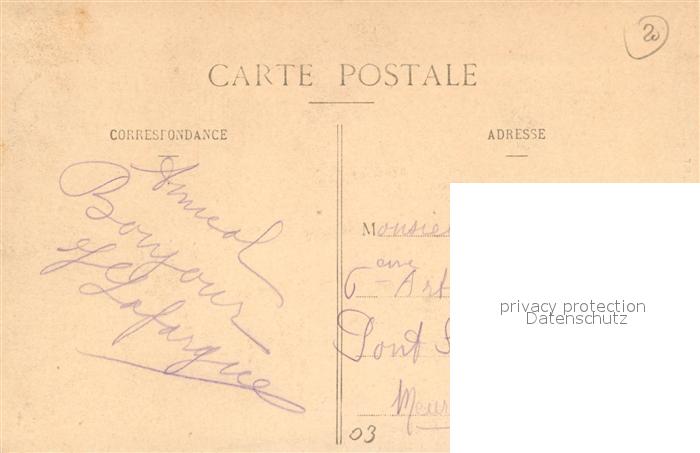 20
CARTE POSTALE
CORRESPONDANCE
ADRESSE
Amical
Bonjour
Lafargue
Monsie
6 eme Art
Pont S
Meur
03
privacy protection
Datenschutz